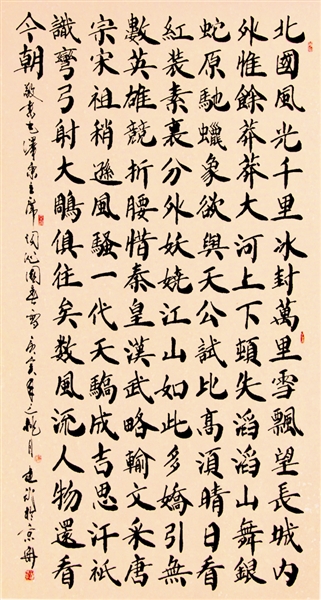 北國風光千里冰封萬里雪飄望長城内
外惟餘莽莽大河上下頓失滔滔山舞銀
蛇原馳蠟象欲與天公試比高須晴日看
紅装素裹分外妖娆江山如此多嬌引無
數英雄競折腰惜秦皇漢武略輸文采唐
宗宋祖稍遜風騷一代天驕成吉思汗祇
識彎弓射大鵰俱往矣数風流人物還看
今朝 敬書毛澤東主席詞沁園春雪 庚寅年之桃月 建於京